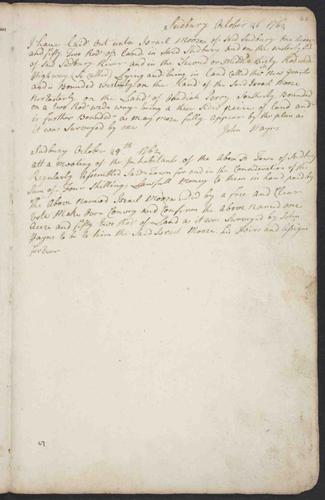 Sudbury October 26 1762
I have laid out unto Israel Moore of sd Sudbury one acre
and fifty two Rod of Land in said Sudbury and on the
of sd Sudbury River and in the Second or Middle Rod wide
Highway (so called) Lying and being in Land called the New Grants
and is Bounded westerly on the Land of the said Israel Moore
Northerly on the Land of Southerly Bounded
on a two Rod wide way being a three sided peice of land and
is further Bounded as may more fully appear by the plan as
it was Surveyed by me
John Haynes
Sudbury October 29th 1762
att a meeting of the Inhabitants of the above sd Town of Sudbury
Regularly Assembled said Town for and in the Consideration of the
Sum of Four Shillings Lawfull Money to them in hand paid by
the above named Israel Moore did by a free and Clear
Vote Make over Convey and Confirm the above named one
Acre and fifty two Rod of Land as it was Surveyed by John
Haynes to be to him the said Israel Moore his Heirs and assigns
for Ever